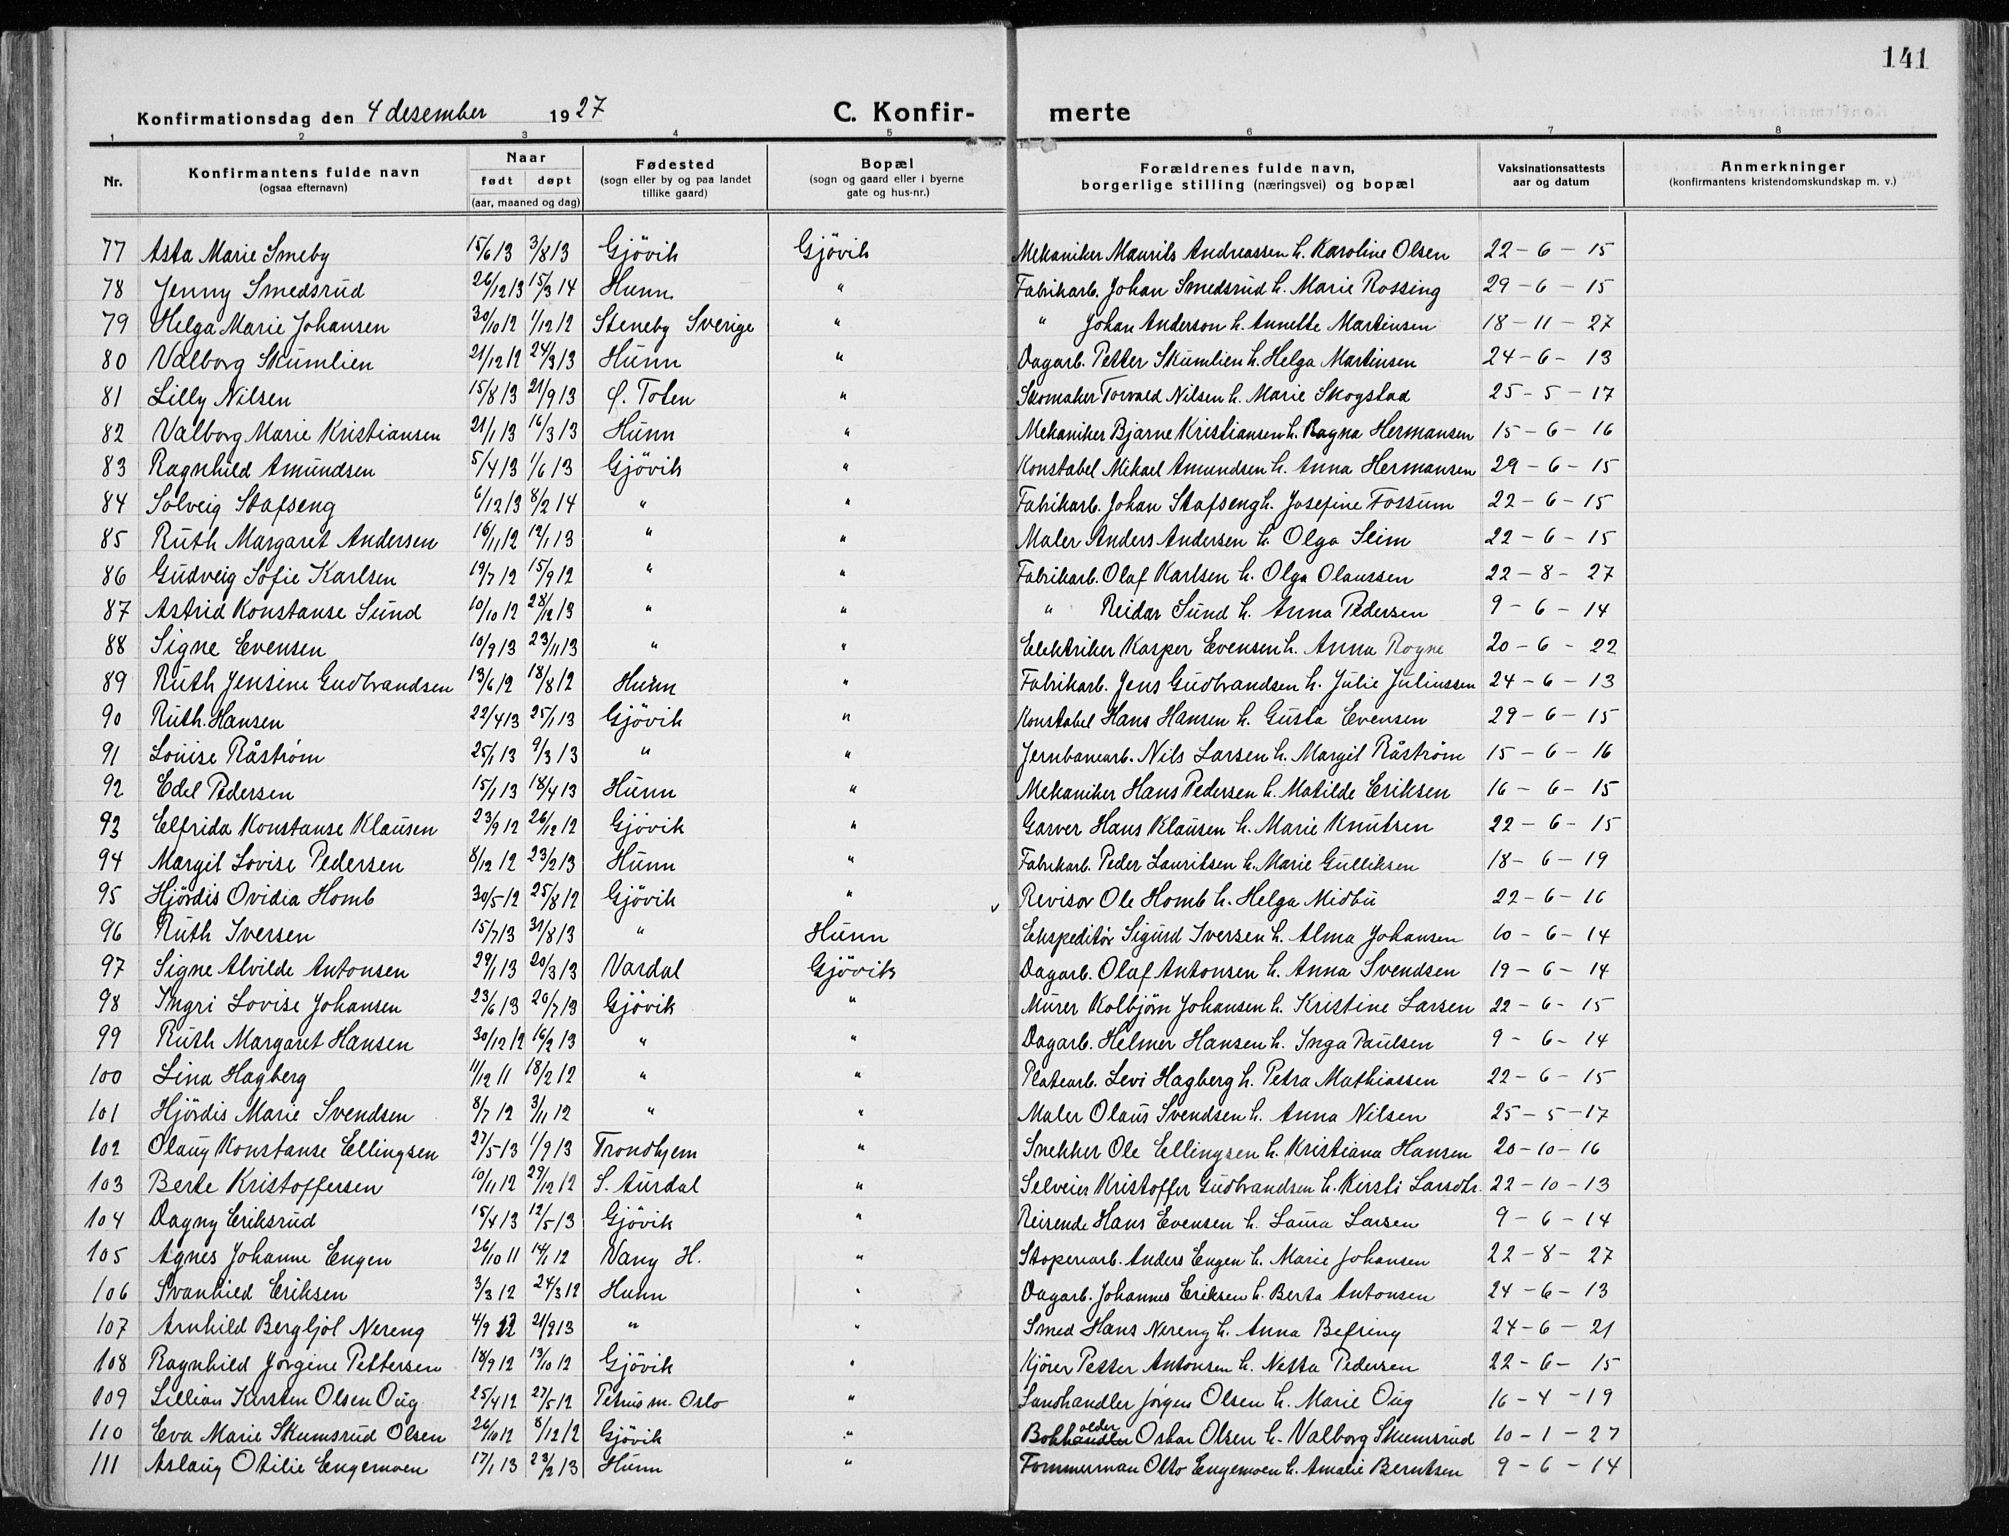 141
Konfirmationsdag den 4 desember 1927 C. Konfir- merte
1 2 3 4 5 6 7 8
Nr. Konfirmantens fulde navn (ogsaa efternavn) Naar født døpt (aar, maaned og dag) Fødested (sogn eller by og paa landet tillike gaard) Bopæl (sogn og gaard eller i byerne gate og hus-nr.) Forældrenes fulde navn, borgerlige stilling (næringsvei) og bopæl Vaksinationsattests aar og datum Anmerkninger (konfirmantens kristendomskundskap m. v.)
77 Asta Marie Smeby 15/6 13 3/8 13 Gjövik Gjövik Mekaniker Maurits Andreassen h. Karoline Olsen 22-6-15
78 Jenny Smedsrud 26/12 13 15/3 14 Hunn " Fabrikarb. Johan Smedsrud h. Marie Rossing 29-6-15
79 Helga Marie Johansen 30/10 12 1/12 12 Steneby Sverige " " Johan Anderson h. Annette Martinsen 18-11-27
80 Valborg Skumlien 21/12 12 24/3 13 Hunn " Dagarb. Petter Skumlien h. Helga Martinsen 24-6-13
81 Lilly Nilsen 15/8 13 21/9 13 Ø. Toten " Skomaker Torvald Nilsen h. Marie Skogstad 25-5-17
82 Valborg Marie Kristiansen 21/1 13 16/3 13 Hunn " Mekaniker Bjarne Kristiansen h. Ragna Hermansen 15-6-16
83 Ragnhild Amundsen 5/4 13 1/6 13 Gjövik " Konstabel Mikael Amundsen h. Anna Hermansen 29-6-15
84 Solveig Stafseng 6/12 13 8/2 14 " " Fabrikarb. Johan Stafseng h. Josefine Fossum 22-6-15
85 Ruth Margaret Andersen 16/11 12 12/1 13 " " Maler Anders Andersen h. Olga Seim 22-6-15
86 Gudveig Sofie Karlsen 19/7 12 15/9 12 " " Fabrikarb. Olaf Karlsen h. Olga Olaussen 22-8-27
87 Astrid Konstanse Sund 10/10 12 28/12 13 " " " Reidar Sund h. Anna Pedersen 9-6-14
88 Signe Evensen 10/9 13 23/11 13 " " Elektriker Kasper Evensen h. Anna Rogne 20-6-22
89 Ruth Jensine Gudbrandsen 13/6 12 18/8 12 Hunn " Fabrikarb. Jens Gudbrandsen h. Julie Juliussen 24-6-13
90 Ruth Hansen 22/4 13 25/1 13 Gjövik " Konstabel Hans Hansen h. Gusta Evensen 29-6-15
91 Louise Råstrøm 25/1 13 9/3 13 " " Jernbanearb. Nils Larsen h. Margit Råstrøm 15-6-16
92 Edel Pedersen 15/1 13 18/4 13 Hunn " Mekaniker Hans Pedersen h. Matilde Eriksen 16-6-15
93 Elfrida Konstanse Klausen 23/9 12 26/12 12 Gjövik " Garver Hans Klausen h. Marie Knutsen 22-6-15
94 Margit Lovise Pedersen 8/12 12 23/2 13 Hunn " Fabrikarb. Peder Lauritsen h. Marie Gulliksen 18-6-19
95 Hjördis Ovidia Homb 30/5 12 25/8 12 Gjövik " Revisor Ole Homb h. Helga Midbu 22-6-16
96 Ruth Iversen 15/7 13 31/8 13 " Hunn Ekspeditør Sigurd Iversen h. Alma Johansen 10-6-14
97 Signe Alvilde Antonsen 29/1 13 20/3 13 Vardal Gjövik Dagarb. Olaf Antonsen h. Anna Svendsen 19-6-14
98 Ingri Lovise Johansen 23/6 13 20/7 13 Gjövik " Murer Kolbjørn Johansen h. Kristine Larsen 22-6-15
99 Ruth Margaret Hansen 30/12 12 16/2 13 " " Dagarb. Helmer Hansen h. Inga Paulsen 9-6-14
100 Lina Hagberg 11/12 11 18/2 12 " " Platearb. Levi Hagberg h. Petra Mathiassen 22-6-15
101 Hjördis Marie Svendsen 8/7 12 3/11 12 " " Maler Olaus Svendsen h. Anna Nilsen 25-5-17
102 Olaug Konstanse Ellingsen 27/5 13 1/9 13 Trondhjem " Snekker Ole Ellingsen h. Kristiana Hansen 20-10-16
103 Berte Kristoffersen 10/11 12 29/12 12 S. Aurdal " Selveier Kristoffer Gudbrandsen h. Kersti Larsdtr. 22-10-13
104 Dagny Eriksrud 15/4 13 12/5 13 Gjövik " Reirende Hans Evensen h. Laura Larsen 9-6-14
105 Agnes Johanne Engen 26/10 11 14/1 12 Vang H. " Stoperiarb. Anders Engen h. Marie Johansen 22-8-27
106 Svanhild Eriksen 3/3 12 24/3 12 Hunn " Dagarb. Johannes Eriksen h. Berta Antonsen 24-6-13
107 Arnhild Bergljot Nereng 4/9 12 21/9 13 " " Smed Hans Nereng h. Anna Befring 24-6-21
108 Ragnhild Jörgine Pettersen 18/9 12 13/10 12 Gjövik " Kjörer Petter Antonsen h. Netta Pedersen 22-6-15
109 Lillian Kirsten Olsen Oug 25/4 12 27/5 12 Petrus m. Oslo " Landhandler Jörgen Olsen h. Marie Oug 16-4-19
110 Eva Marie Skumsrud Olsen 26/10 12 8/12 12 Gjövik " Bokhandler older Oskar Olsen h. Valborg Skumsrud 10-1-27
111 Aslaug Otilie Engemoen 17/1 13 23/2 13 Hunn " Tommerman Otto Engemoen h. Amalie Berntsen 9-6-14